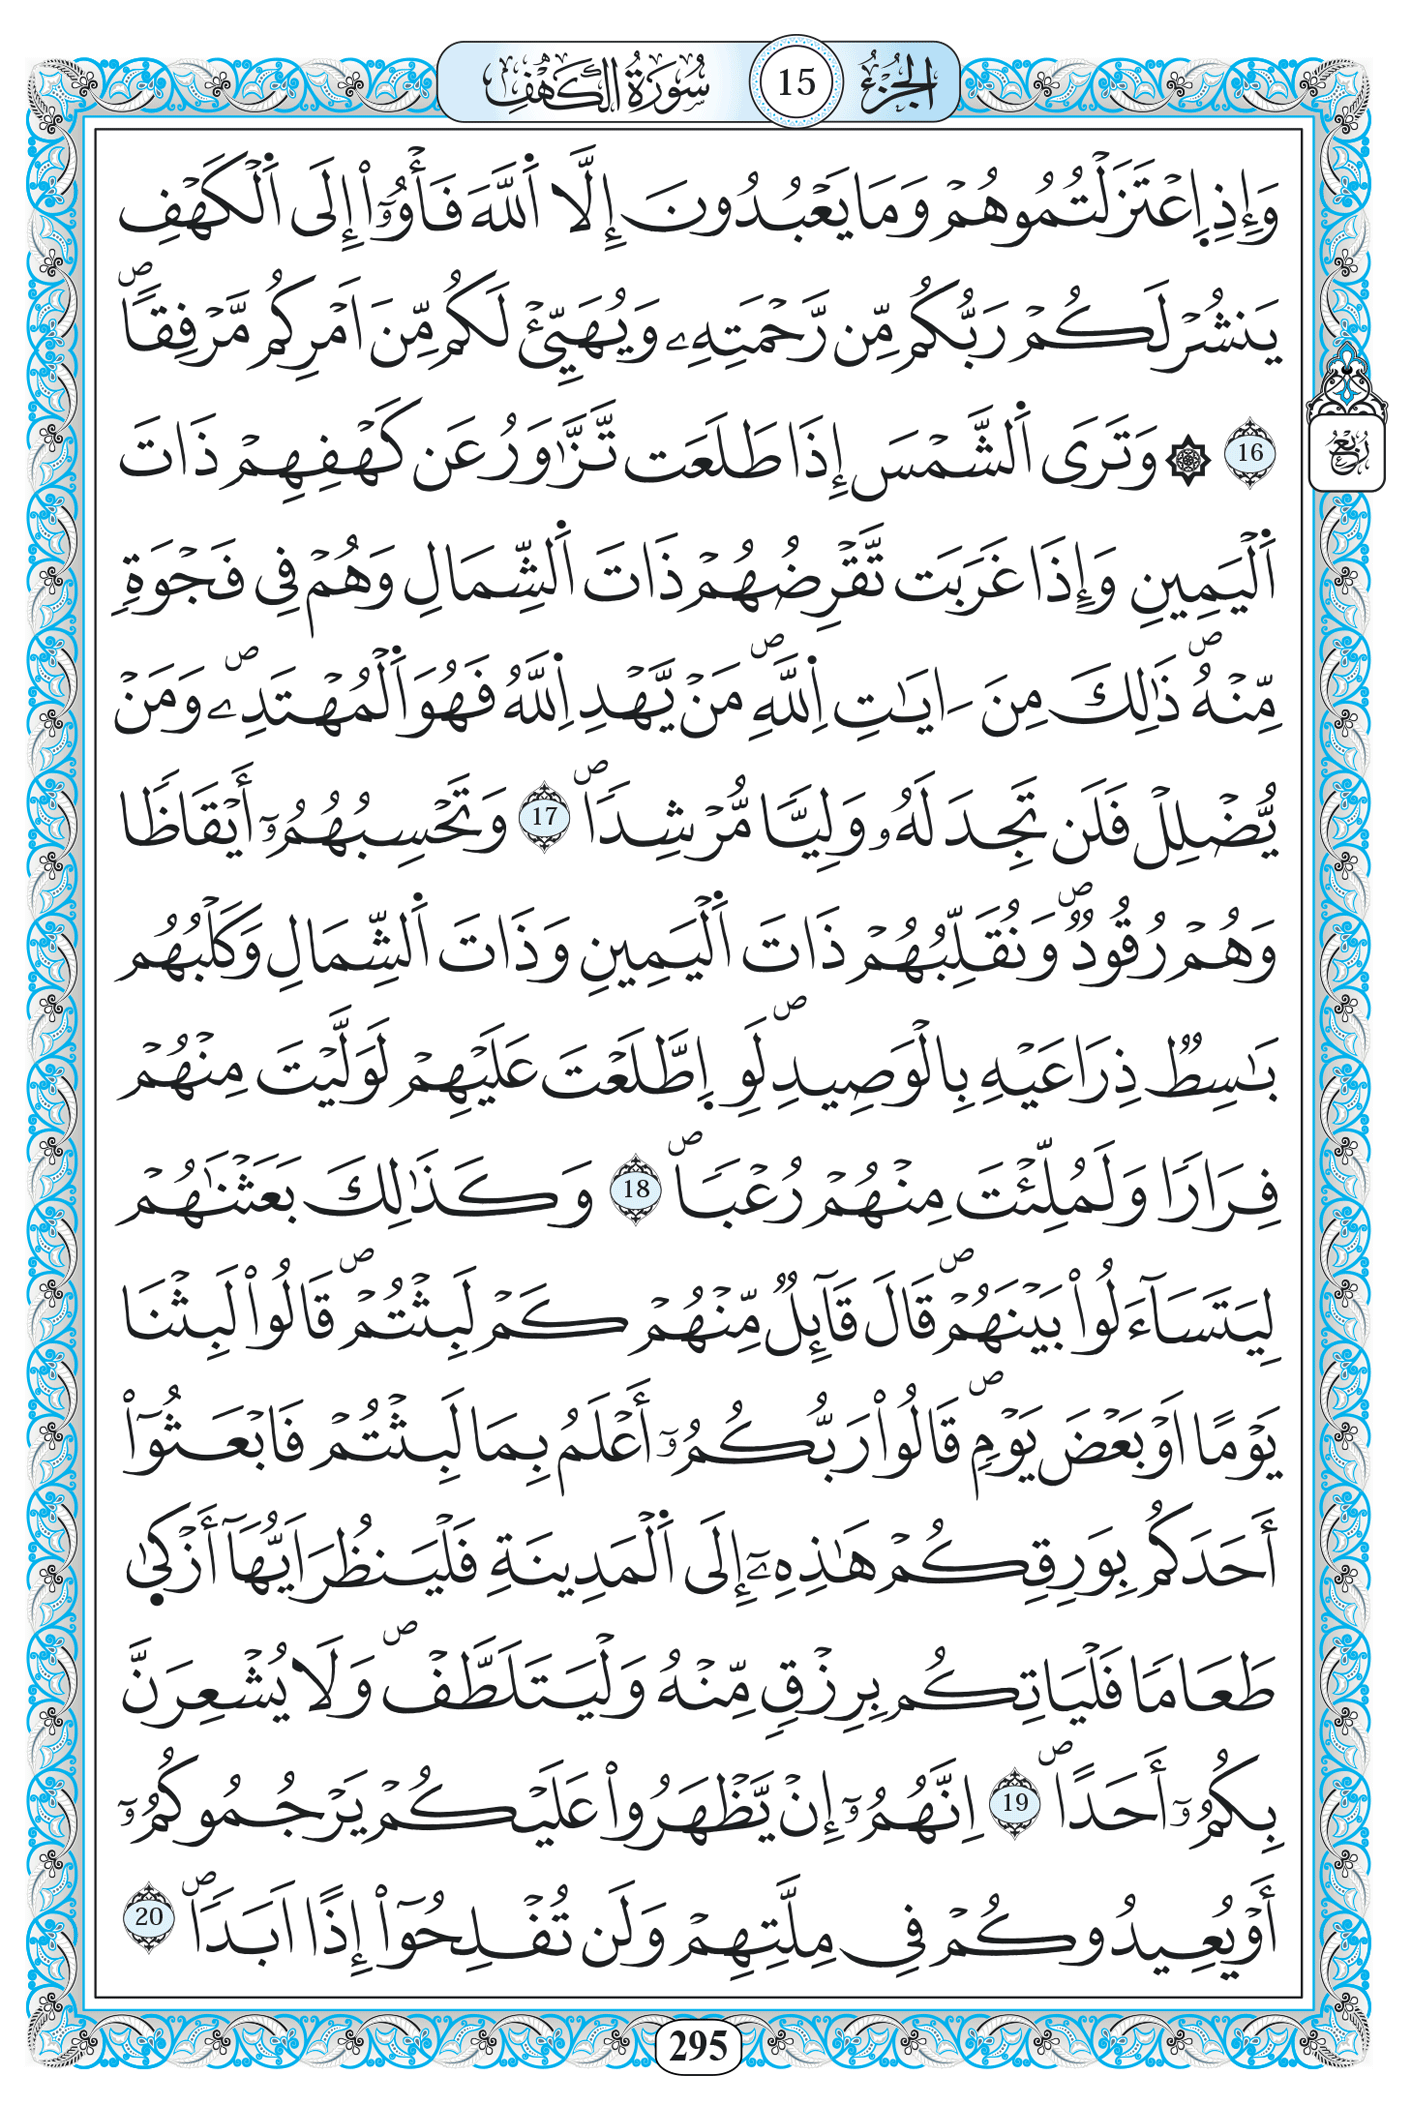 الجزء 15 سورة الكهف
وَإِذِ اِ۪عْتَزَلْتُمُوهُمْ وَمَا يَعْبُدُونَ إِلَّا اَ۬للَّهَ فَأْوُۥٓاْ إِلَى اَ۬لْكَهْفِ
يَنشُرْ لَكُمْ رَبُّكُم مِّن رَّحْمَتِهِۦ وَيُهَيِّئْ لَكُم مِّنَ اَمْرِكُم مَّرْفِقاًۖ
16 ۞ وَتَرَى اَ۬لشَّمْسَ إِذَا طَلَعَت تَّزَّٰوَرُ عَن كَهْفِهِمْ ذَاتَ
رُبْع
اَ۬لْيَمِينِ وَإِذَا غَرَبَت تَّقْرِضُهُمْ ذَاتَ اَ۬لشِّمَالِ وَهُمْ فِي فَجْوَةٖ
مِّنْهُۖ ذَٰلِكَ مِنَ ءَايَٰتِ اِ۬للَّهِۖ مَنْ يَّهْدِ اِ۬للَّهُ فَهُوَ اَ۬لْمُهْتَدِۦۖ وَمَنْ
يُّضْلِلْ فَلَن تَجِدَ لَهُۥ وَلِيّاٗ مُّرْشِداٗۖ 17 وَتَحْسِبُهُمُۥٓ أَيْقَاظاٗ
وَهُمْ رُقُودٞۖ وَنُقَلِّبُهُمْ ذَاتَ اَ۬لْيَمِينِ وَذَاتَ اَ۬لشِّمَالِ وَكَلْبُهُم
بَٰسِطٞ ذِرَاعَيْهِ بِالْوَصِيدِۖ لَوِ اِ۪طَّلَعْتَ عَلَيْهِمْ لَوَلَّيْتَ مِنْهُمْ
فِرَاراٗ وَلَمُلِّئْتَ مِنْهُمْ رُعْباٗۖ 18 وَكَذَٰلِكَ بَعَثْنَٰهُمْ
لِيَتَسَآءَلُواْ بَيْنَهُمْۖ قَالَ قَآئِلٞ مِّنْهُمْ كَمْ لَبِثْتُمْۖ قَالُواْ لَبِثْنَا
يَوْماً اَوْ بَعْضَ يَوْمٖۖ قَالُواْ رَبُّكُمُۥٓ أَعْلَمُ بِمَا لَبِثْتُمْ فَابْعَثُوٓاْ
أَحَدَكُم بِوَرِقِكُمْ هَٰذِهِۦٓ إِلَى اَ۬لْمَدِينَةِ فَلْيَنظُرَ اَيُّهَآ أَزْك۪يٰ
طَعَاماٗ فَلْيَاتِكُم بِرِزْقٖ مِّنْهُ وَلْيَتَلَطَّفْۖ وَلَا يُشْعِرَنَّ
بِكُمُۥٓ أَحَداًۖ 19 اِنَّهُمُۥٓ إِنْ يَّظْهَرُواْ عَلَيْكُمْ يَرْجُمُوكُمُۥٓ
أَوْ يُعِيدُوكُمْ فِي مِلَّتِهِمْ وَلَن تُفْلِحُوٓاْ إِذاً اَبَداٗۖ 20
295